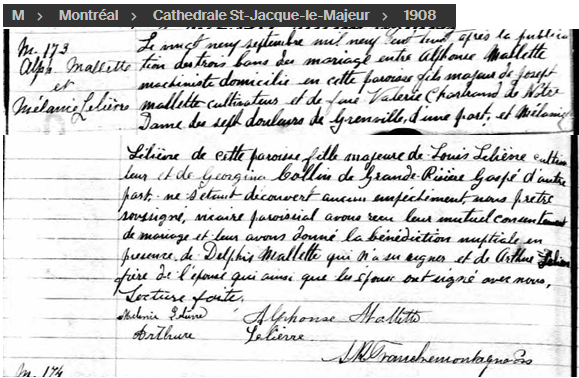 M > Montréal > Cathedrale St-Jacque-le-Majeur > 1908
M. 173
Alph. Mallette
et
Mélanie Lelièvre
Le vingt neuf septembre mil neuf cent huit après la publica
tion des trois bans de mariage entre Alphonse Mallette
machiniste domicilié en cette paroisse fils majeur de Joseph
Mallette cultivateur et de feue Valerie Chartrand de Notre
Dame des sept douleurs de Grenville, d'une part, et Mélanie
Lelièvre de cette paroisse fille majeure de Louis Lelièvre cultiva
teur et de Georgina Collin de Grande-Rivière Gaspé d'autre
part, ne s'étant découvert aucun empêchement, nous prêtre
soussigné, vicaire paroissial avons reçu leur mutuel consentement
de mariage et leur avons donné la bénédiction nuptiale en
presence de Delphis Mallette qui n'a su signer et de Arthur Lelièvre
frère de l'épouse qui ainsi que les époux ont signé avec nous,
Lecture faite.
Mélanie Lelièvre Alphonse Mallette
Arthure Lelièvre
Franchemontagne
M. 174